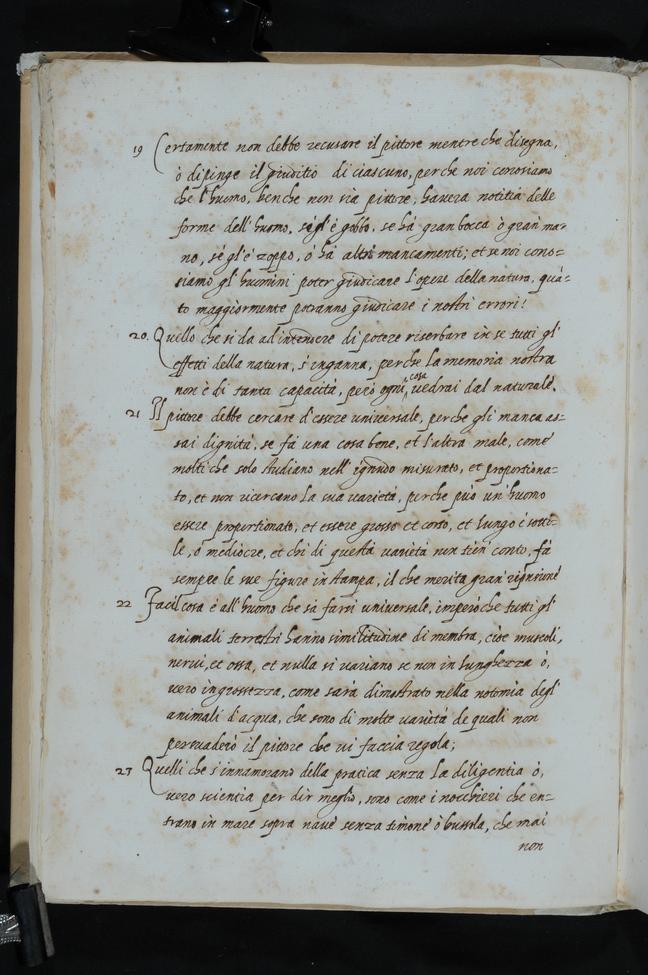 19 Certamente non debbe recusare il pittore mentre che disegna,
ò dipinge il giuditio di ciascuno, perche noi conosiamo
che l'huomo, benche non sia pittore, havera notitia delle
forme dell'huomo, s'egl'è gobbo, se hà gran bocca ò gran ma-
no, s'egl'è zoppo, ò hà altri mancamenti; et se noi cono=
siamo gl'huomini poter giudicare l'opere della natura, quà=
to maggiormente potranno giudicare i nostri errori!
20. Quello che si da ad intendere di potere riserbare in se tutti gl'
effetti della natura, s'inganna, perche la memoria nostra
non è di tanta capacità, però ogni cosa vedrai dal naturale.
21 Il pittore debbe cercare d'essere universale, perche gli manca as=
sai dignità, se fà una cosa bene, et l'altra male, come
molti che solo studiano nell'ignudo misurato, et proportiona=
to, et non ricercano la sua varietà, perche può un'huomo
essere proportionato, et essere grosso et corto, et lungo è sotti=
le, ò mediocre, et chi di questa varietà non tien conto, fà
sempre le sue figure in stampa, il che merita gran'
22 Facil cosa è all'huomo che sà farsi universale, imperòche tutti gl'
animali terrestri hanno similitudine di membra, cioè muscoli,
nervi, et ossa, et nulla si variano se non in lunghezza ò,
vero in grossezza, come sarà dimostrato nella notomia degl'
animali d'acqua, che sono di molte varietà de quali non
persuaderò il pittore che vi faccia regola;
23 Quelli che s'innamorano della pratica senza la diligentia ò,
vero scientia per dir meglio, sono come i nocchieri che en=
trano in mare sopra nave senza timone ò bussola, che mai
non